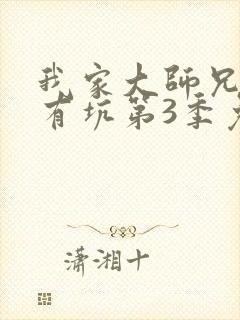 我家大師兄
有坑第3季
瀟湘十